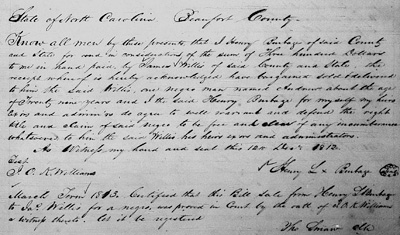 State of North Carolina Beaufort County.
Know all men by these presents that I Henry Burbage of said County
and State for and in consideration of the sum of Five hundred Dollars
to me in hand paid by James Willis of said County and State the
receipt whereof is hereby acknowledged have bargained sold & delivered
to him the said Willis, one negro man named Andrew about the age
of Twenty nine years and I the said Henry Burbage for myself my heirs
Exrs and admin'rs do agree to well warrant and defend the right
title and claim of said negro to be free and clear of any incumbrances
whatsoever to him the said Willis his heirs exrs and administrators.
As Witness my hand and seal this 12th Dec'r 1812.
Test
J. O. K. Williams
Henry L x Burbage
March Term 1813. Certified that this Bill Sale from Henry Burbage
to Jas. Willis for a negro, was proved in Court by the oath of J. O. K. Williams
a witness thereto. Let it be registered
Tho Smaw